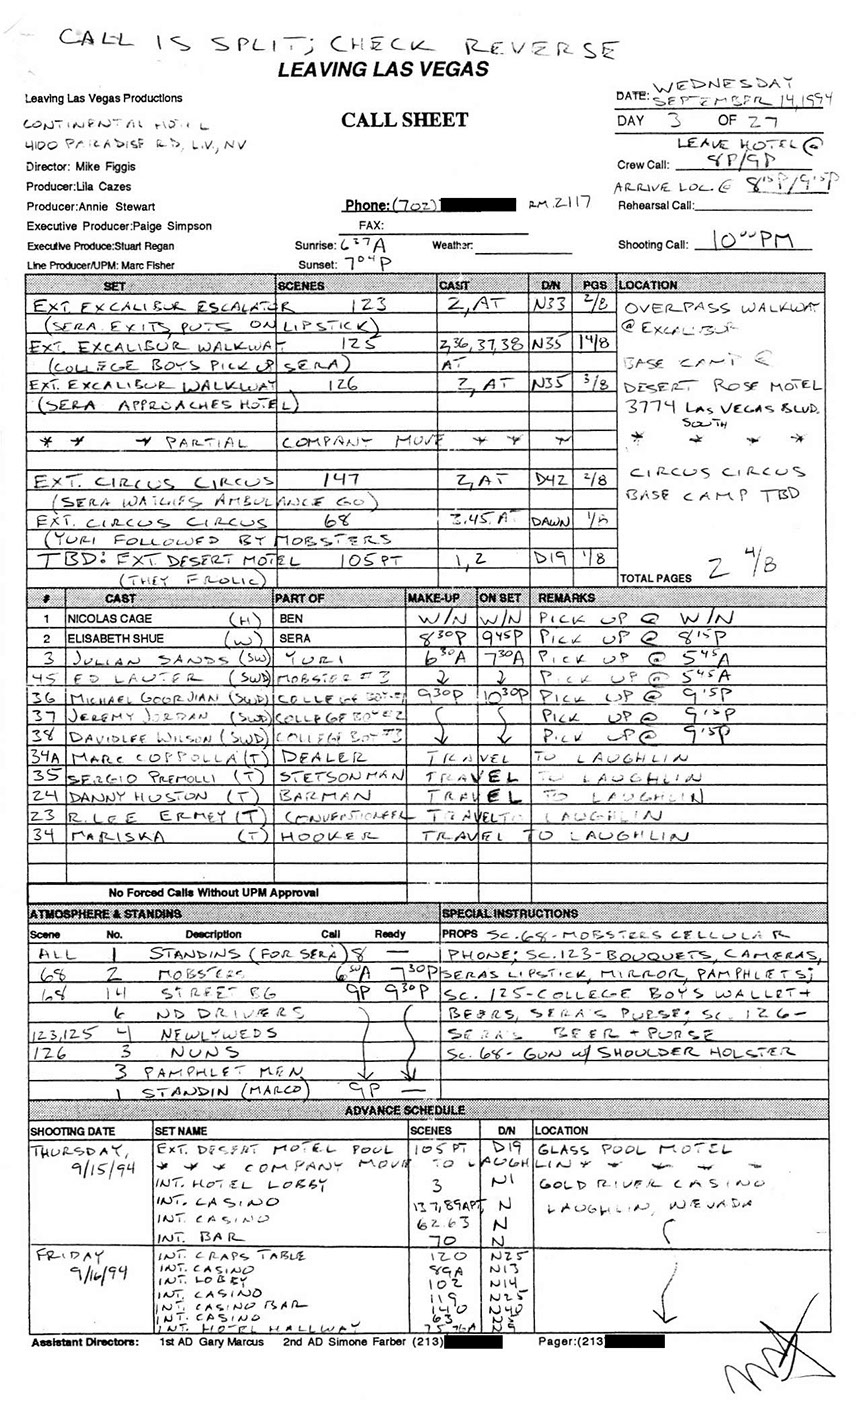 CALL IS SPLIT; CHECK REVERSE
LEAVING LAS VEGAS
Leaving Las Vegas Productions
CONTINENTAL HOTEL
4100 PARADISE RD, L.V., NV
Director: Mike Figgis
Producer:Lila Cazes
Producer:Annie Stewart
Executive Producer:Paige Simpson
Executive Produce:Stuart Regan
Line Producer/UPM: Marc Fisher
CALL SHEET
Phone:(702) RM. 2117
FAX:
Sunrise: 6 27 A Weather:
Sunset: 7 04 P
DATE: WEDNESDAY
SEPTEMBER 14, 1994
DAY 3 OF 27
LEAVE HOTEL @
Crew Call: 8P/9P
ARRIVE LOC. @ 8 15 P/9 15 P
Rehearsal Call:
Shooting Call: 10 00 PM
SET SCENES CAST D/N PGS LOCATION
EXT. EXCALIBUR ESCALATOR 123 2, AT N33 2/8 OVERPASS WALKWAY
(SERA EXITS, PUTS ON LIPSTICK) @ EXCALIBUR
EXT. EXCALIBUR WALKWAY 125 2,36,37,38 N35 14/8
(COLLEGE BOYS PICK UP SERA) AT BASE CAMP @
EXT. EXCALIBUR WALKWAY 126 2, AT N35 3/8 DESERT ROSE MOTEL
(SERA APPROACHES HOTEL) 3774 LAS VEGAS BLVD.
SOUTH
* * * PARTIAL COMPANY MOVE * * * * * * *
EXT. CIRCUS CIRCUS 147 2, AT D42 2/8 CIRCUS CIRCUS
(SERA WATCHES AMBULANCE GO) BASE CAMP TBD
EXT. CIRCUS CIRCUS 68 3,45, AT DAWN 1/8
(YURI FOLLOWED BY MOBSTERS
TBD: EXT. DESERT MOTEL 105PT 1,2 D19 1/8
(THEY FROLIC) TOTAL PAGES 2 4/8
# CAST PART OF MAKE-UP ON SET REMARKS
1 NICOLAS CAGE (H) BEN W/N W/N PICK UP @ W/N
2 ELISABETH SHUE (W) SERA 8 30 P 9 45 P PICK UP @ 8 15 P
3 JULIAN SANDS (SW) YURI 6 30 A 7 30 A PICK UP @ 5 45 A
45 ED LAUTER (SWD) MOBSTER #3 PICK UP @ 5 45 A
36 MICHAEL GOORJIAN (SWD) COLLEGE BOY #1 9 30 P 10 30 P PICK UP @ 9 15 P
37 JEREMY JORDAN (SWD) COLLEGE BOY #2 PICK UP @ 9 15 P
38 DAVIDLEE WILSON (SWD) COLLEGE BOY #3 PICK UP @ 9 15 P
34A MARC COPPOLLA (T) DEALER TRAVEL TO LAUGHLIN
35 SERGIO PREMOLLI (T) STETSON MAN TRAVEL TO LAUGHLIN
24 DANNY HUSTON (T) BARMAN TRAVEL TO LAUGHLIN
23 R. LEE ERMEY (T) CONVENTIONEER TRAVEL TO LAUGHLIN
34 MARISKA (T) HOOKER TRAVEL TO LAUGHLIN
No Forced Calls Without UPM Approval
ATMOSPHERE & STANDINS SPECIAL INSTRUCTIONS
Scene No. Description Call Ready PROPS SC. 68 - MOBSTERS CELLULAR
ALL 1 STANDINS (FOR SERA) 8 — PHONE; SC. 123 - BOUQUETS, CAMERAS,
68 2 MOBSTERS 6 30 A 7 30 P SERAS LIPSTICK, MIRROR, PAMPHLETS;
68 14 STREET BG 9P 9 30 P SC. 125 - COLLEGE BOYS WALLET +
6 ND DRIVERS BEERS, SERA'S PURSE; SC. 126 -
123,125 4 NEWLYWEDS SERA'S BEER + PURSE
126 3 NUNS SC. 68 - GUN W/ SHOULDER HOLSTER
3 PAMPHLET MEN
1 STANDIN (MARCO) 9P —
ADVANCE SCHEDULE
SHOOTING DATE SET NAME SCENES D/N LOCATION
THURSDAY, EXT. DESERT MOTEL POOL 105 PT D19 GLASS POOL MOTEL
9/15/94 * * * COMPANY MOVE TO LAUGHLIN * * * * *
INT. HOTEL LOBBY 3 N1 GOLD RIVER CASINO
INT. CASINO 137, 89APT N LAUGHLIN, NEVADA
INT. CASINO 62,63 N
INT. BAR 70 N
FRIDAY INT. CRAPS TABLE 120 N25
9/16/94 INT. CASINO 89A N13
INT. LOBBY 102 N14
INT. CASINO 119 N25
INT. CASINO BAR 140 N40
INT. CASINO 63
INT. HOTEL HALLWAY 75,76A N9
Assistant Directors: 1st AD Gary Marcus 2nd AD Simone Farber (213) Pager:(213)